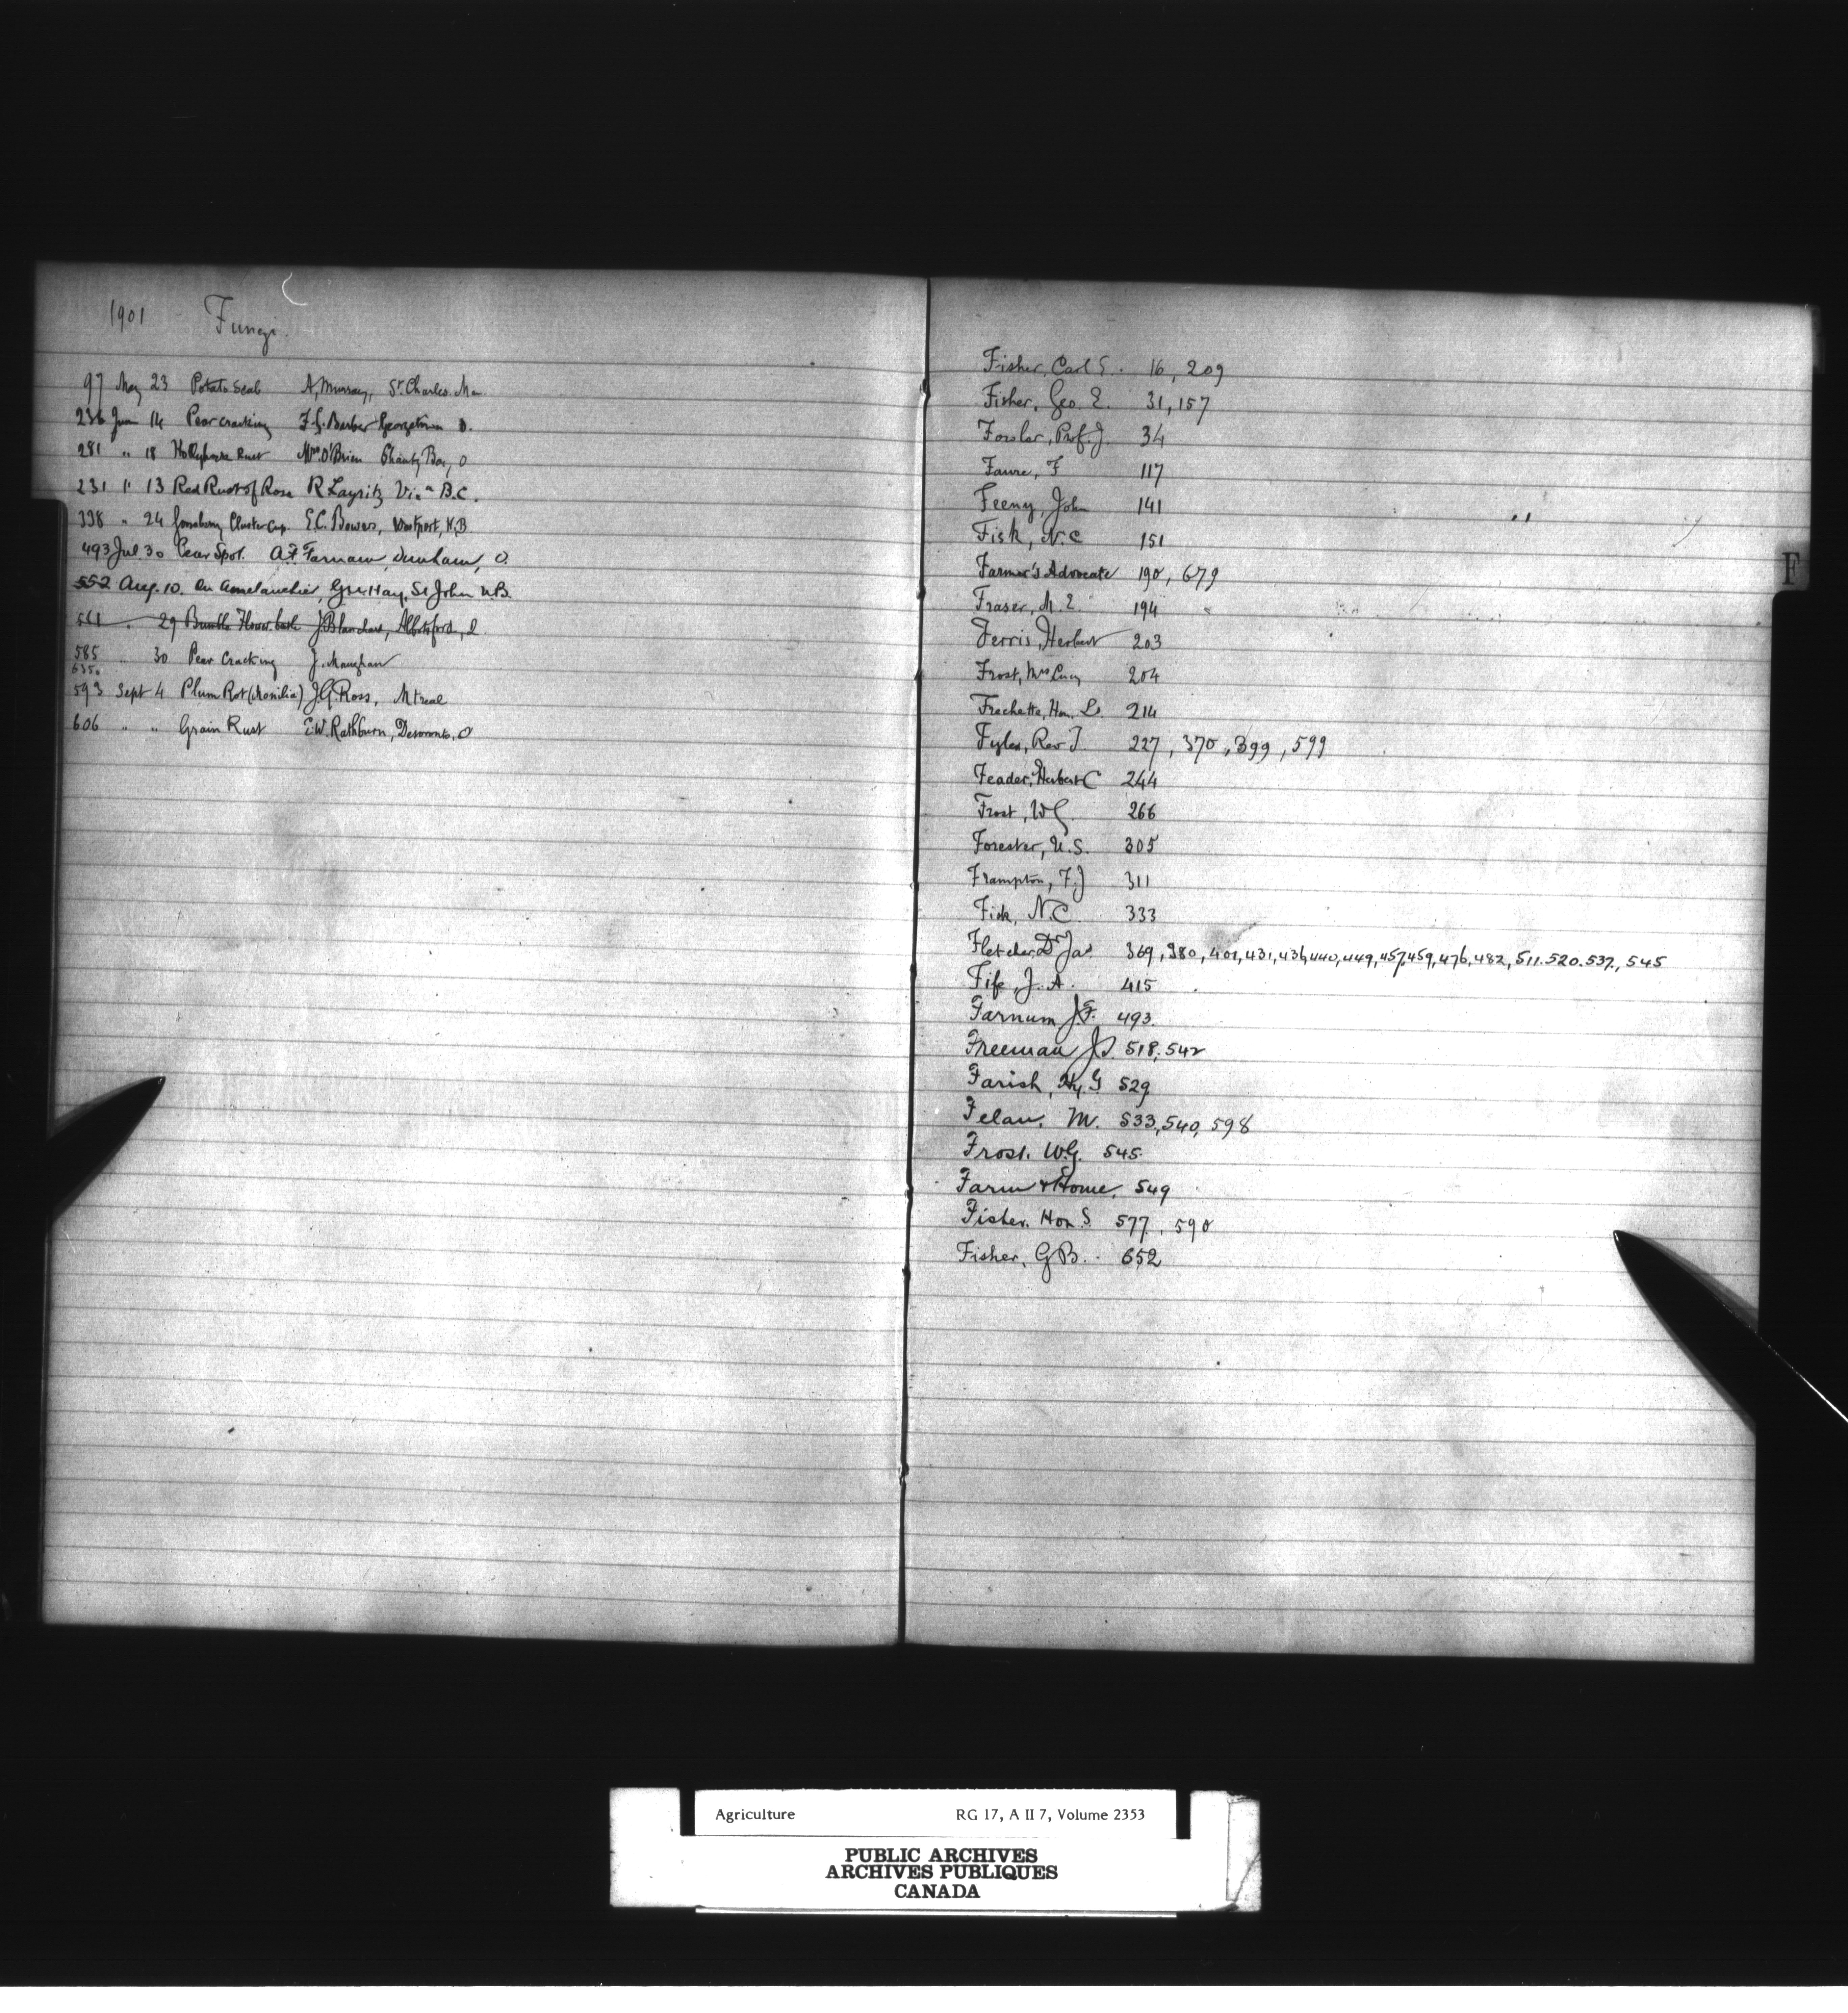 1901 Fungi.
97 May 23 Potato Scab A. Murray, St. Charles. Man.
236 June 14 Pear cracking F.G. Barber Georgetown O.
281 " 18 Hollyhock Rust Mrs. O'Brien Shanty Bay, O
231 " 13 Red Rust of Rose R Layritz Via B.C.
338 " 24 Gooseberry Cluster Cup. E.C. Bowers, Westport, N.B
493 Jul. 30 Pear Spot. A.F. Farnam, Dunham, Q.
552 Aug. 10. On Amelanchier, G.U. Hay, St John N.B.
561 " 29 Bumble Flower beetle J. Blanchard, Abbotsford, Q.
585 " 30 Pear Cracking J. Maughan
635.
593 Sept 4 Plum Rot (Monilia) J.G. Ross, Mtreal
606 " " Grain Rust E.W. Rathburn, Deseronto, O
Fisher, Carl E. 16, 209
Fisher, Geo. E. 31, 157
Fowler, Prof. J. 34
Faure, F 117
Feeny, John 141
Fisk, N.C 151
Farmer's Advocate 190, 679
Fraser, M. E. 194
Ferris, Herbert 203
Frost, Mrs Lucy 204
Frechette, Hon. L. 214
Fyles, Rev T. 227, 370, 399, 599
Feader, Herbert C 244
Frost, W G 266
Forester, U.S. 305
Frampton, F.J 311
Fisk, N.C. 333
Fletcher, Dr Jas. 369, 380, 401, 431, 436, 440, 449, 457, 459, 476, 482, 511. 520. 537., 545
Fife, J. A. 415
Farnum J.F. 493.
Freeman J.S. 518, 542
Farish, Hy. G 529
Felan, M. 533, 540, 598
Frost. W.G. 545.
Farm & Home. 549
Fisher. Hon. S. 577, 590
Fisher, G B. 652
F
Agriculture RG 17, A II 7, Volume 2353
PUBLIC ARCHIVES
ARCHIVES PUBLIQUES
CANADA